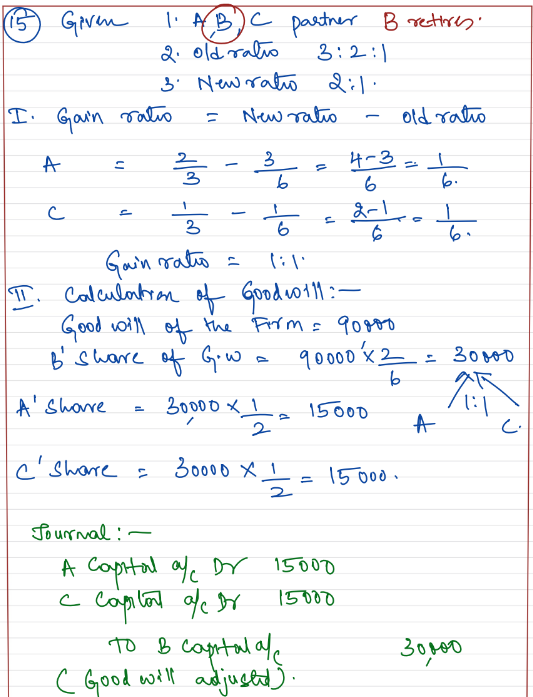 15 Given 1. A, B, C partner B retires.
2. Old ratio 3:2:1
3. New ratio 2:1.
I. Gain ratio = New ratio - old ratio
A = 2/3 - 3/6 = 4-3/6 = 1/6.
C = 1/3 - 1/6 = 2-1/6 = 1/6.
Gain ratio = 1:1.
II. Calculation of Goodwill:-
Good will of the Firm = 90000
B' Share of G.w = 90000 x 2/6 = 30000
A' Share = 30000 x 1/2 = 15000
1:1
A C.
C' Share = 30000 x 1/2 = 15000.
Journal:-
A Capital a/c Dr 15000
C Capital a/c Dr 15000
To B capital a/c 30,000
(Good will adjusted).